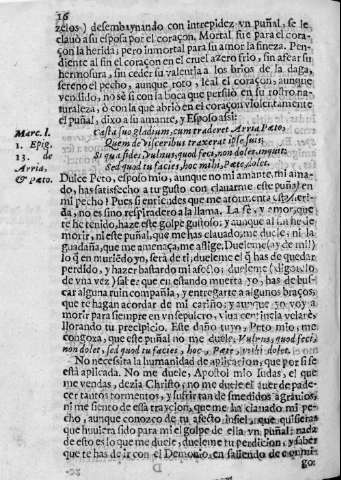 16
zelos) desembaynando con intrepidez vn puñal, se le
clauò a su esposa por el coraçon. Mortal fue para el cora-
çon la herida; pero inmortal para su amor la fineza. Pen-
diente al fin el coraçon en el cruel azero frio, sin afear su
hermosura, sin ceder su valentia a los brios de la daga,
sereno el pecho, aunque roto, leal el coraçon, aunque
vendido, no sè si con la boca que persilò en su rostro na-
turaleza, ò con la que abriò en el coraçon violentamente
el puñal, dixo a su amante, y Esposo assi:
Marc. l.
1. Epig.
13. de
Arria,
& Pæto.
Casta suo gladium, cum traderet Arria Pæto,
Quem de visceribus traxerat ipse suis;
Si qua fides, vulnus, quod feci, non dolet, inquit:
Sed quod tu facies, hoc mihi, Pæte, dolet.
Dulce Peto, esposo mio, aunque no mi amante, mi ama-
do, has satisfecho a tu gusto con clauarme este puñal en
mi pecho! Pues si entiendes que me atormenta esta heri-
da, no es sino respiradero a la llama. La fè, y amor, que
te he tenido, haze este golpe gustoso; y aunque al fin he de
morir, ni este puñal, que me has clauado, me duele, ni la
guadaña, que me amenaça, me aflige. Dueleme (ay de mi!)
lo q̃ en muriẽdo yo, serà de ti, dueleme el q̃ has de quedar
perdido, y hazer bastardo mi afecto; dueleme (digaselo
de vna vez) saber que en estando muerta yo, has de bus-
car alguna ruin compañia, y entregarte a algunos braços,
que te hagan acordar de mi cariño; y aunque yo voy a
morir para siempre en vn sepulcro, viua centinela velarè,
llorando tu precipicio. Este daño tuyo, Peto mio, me
congoxa, que este puñal no me duele. Vulnus, quod feci,
non dolet, sed quod tu facies, hoc, Pæte, mihi dolet.
No necessita la humanidad de aplicacion, que por si se
està aplicada. No me duele, Apostol mio Iudas, el que
me vendas, dezia Christo, no me duele el auer de pade-
cer tantos tormentos, y sufrir tan desmedidos agrauios,
ni me siento de essa traycion, que me ha clauado mi pe-
cho, aunque conozco de tu afecto infiel, que quisieras
que huuiera sido para mi el golpe de ella vn puñal; nada
de esto es lo que me duele, dueleme tu perdicion, y saber
que te has de ir con el Demonio, en saliendo de conmi-
D
go: